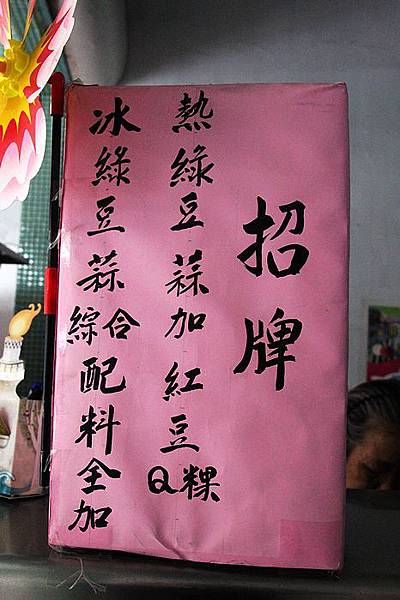 招牌
熱綠豆蒜加紅豆Q粿
冰綠豆蒜綜合配料全加